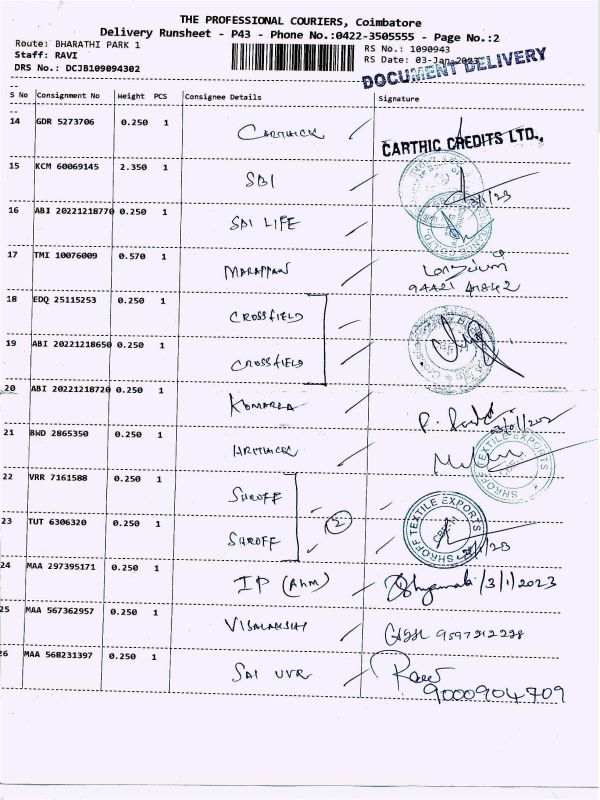 THE PROFESSIONAL COURIERS, Coimbatore
Delivery Runsheet - P43 - Phone No.:0422-3505555 - Page No.:2
Route: BHARATHI PARK 1 RS No.: 1090943
Staff: RAVI RS Date: 03-Jan-2023
DRS No.: DCJB109094302 DOCUMENT DELIVERY
S No Consignment No Weight PCS Consignee Details Signature
14 GDR 5273706 0.250 1 CARTHICK CARTHIC CREDITS LTD.,
15 KCM 60069145 2.350 1 SBI 3/1/23
16 ABI 20221218770 0.250 1 SBI LIFE
17 TMI 10076009 0.570 1 MARAPPAN
94421 41842
18 EDQ 25115253 0.250 1 CROSSFIELD
19 ABI 20221218650 0.250 1 CROSSFIELD
20 ABI 20221218720 0.250 1 KOMARLA
21 BWD 2865350 0.250 1 SHROFF TEXTILE EXPORTS
22 VRR 7161588 0.250 1 SHROFF
2
23 TUT 6306320 0.250 1 SHROFF SHROFF TEXTILE EXPORTS
24 MAA 297395171 0.250 1 IP (Ahm) Shyamala 3/1/2023
25 MAA 567362957 0.250 1 VISALAKSHI 9597212228
26 MAA 568231397 0.250 1 SAI UVR
9000904709